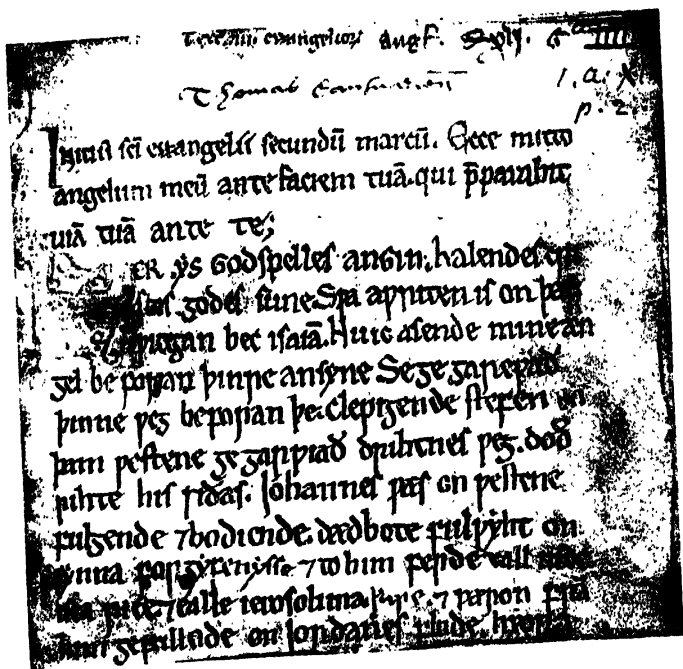 evangeliorū
Thomas Cantuarien
Initiū sc̄i euuangelii secundū marcū. Ecce mitto
angelum meū ante faciem tuā. qui p̄parabit
uiā tuā ante te;
ER ys Godspelles angin. halendes
godes sune. Sƿa aƿriten is on þas
ƿitegan bec isaiā. Nu ic asende mine æn
gel be foran þinne ansyne Se ge gareƿad
þinne ƿeg beforan þe. Clepigende stefen on
þam ƿestene ge garƿiað drihtnes ƿeg. doð
rihte his sidas. Iohannes ƿæs on ƿestene
fulgende ⁊ bodiende. dædbote fulƿyht on
synna forgyfenysse ⁊ to him ferde eall
rice ⁊ ealle ierosolima ƿare. ⁊ ƿæron
gefullode on Iordanes flode.